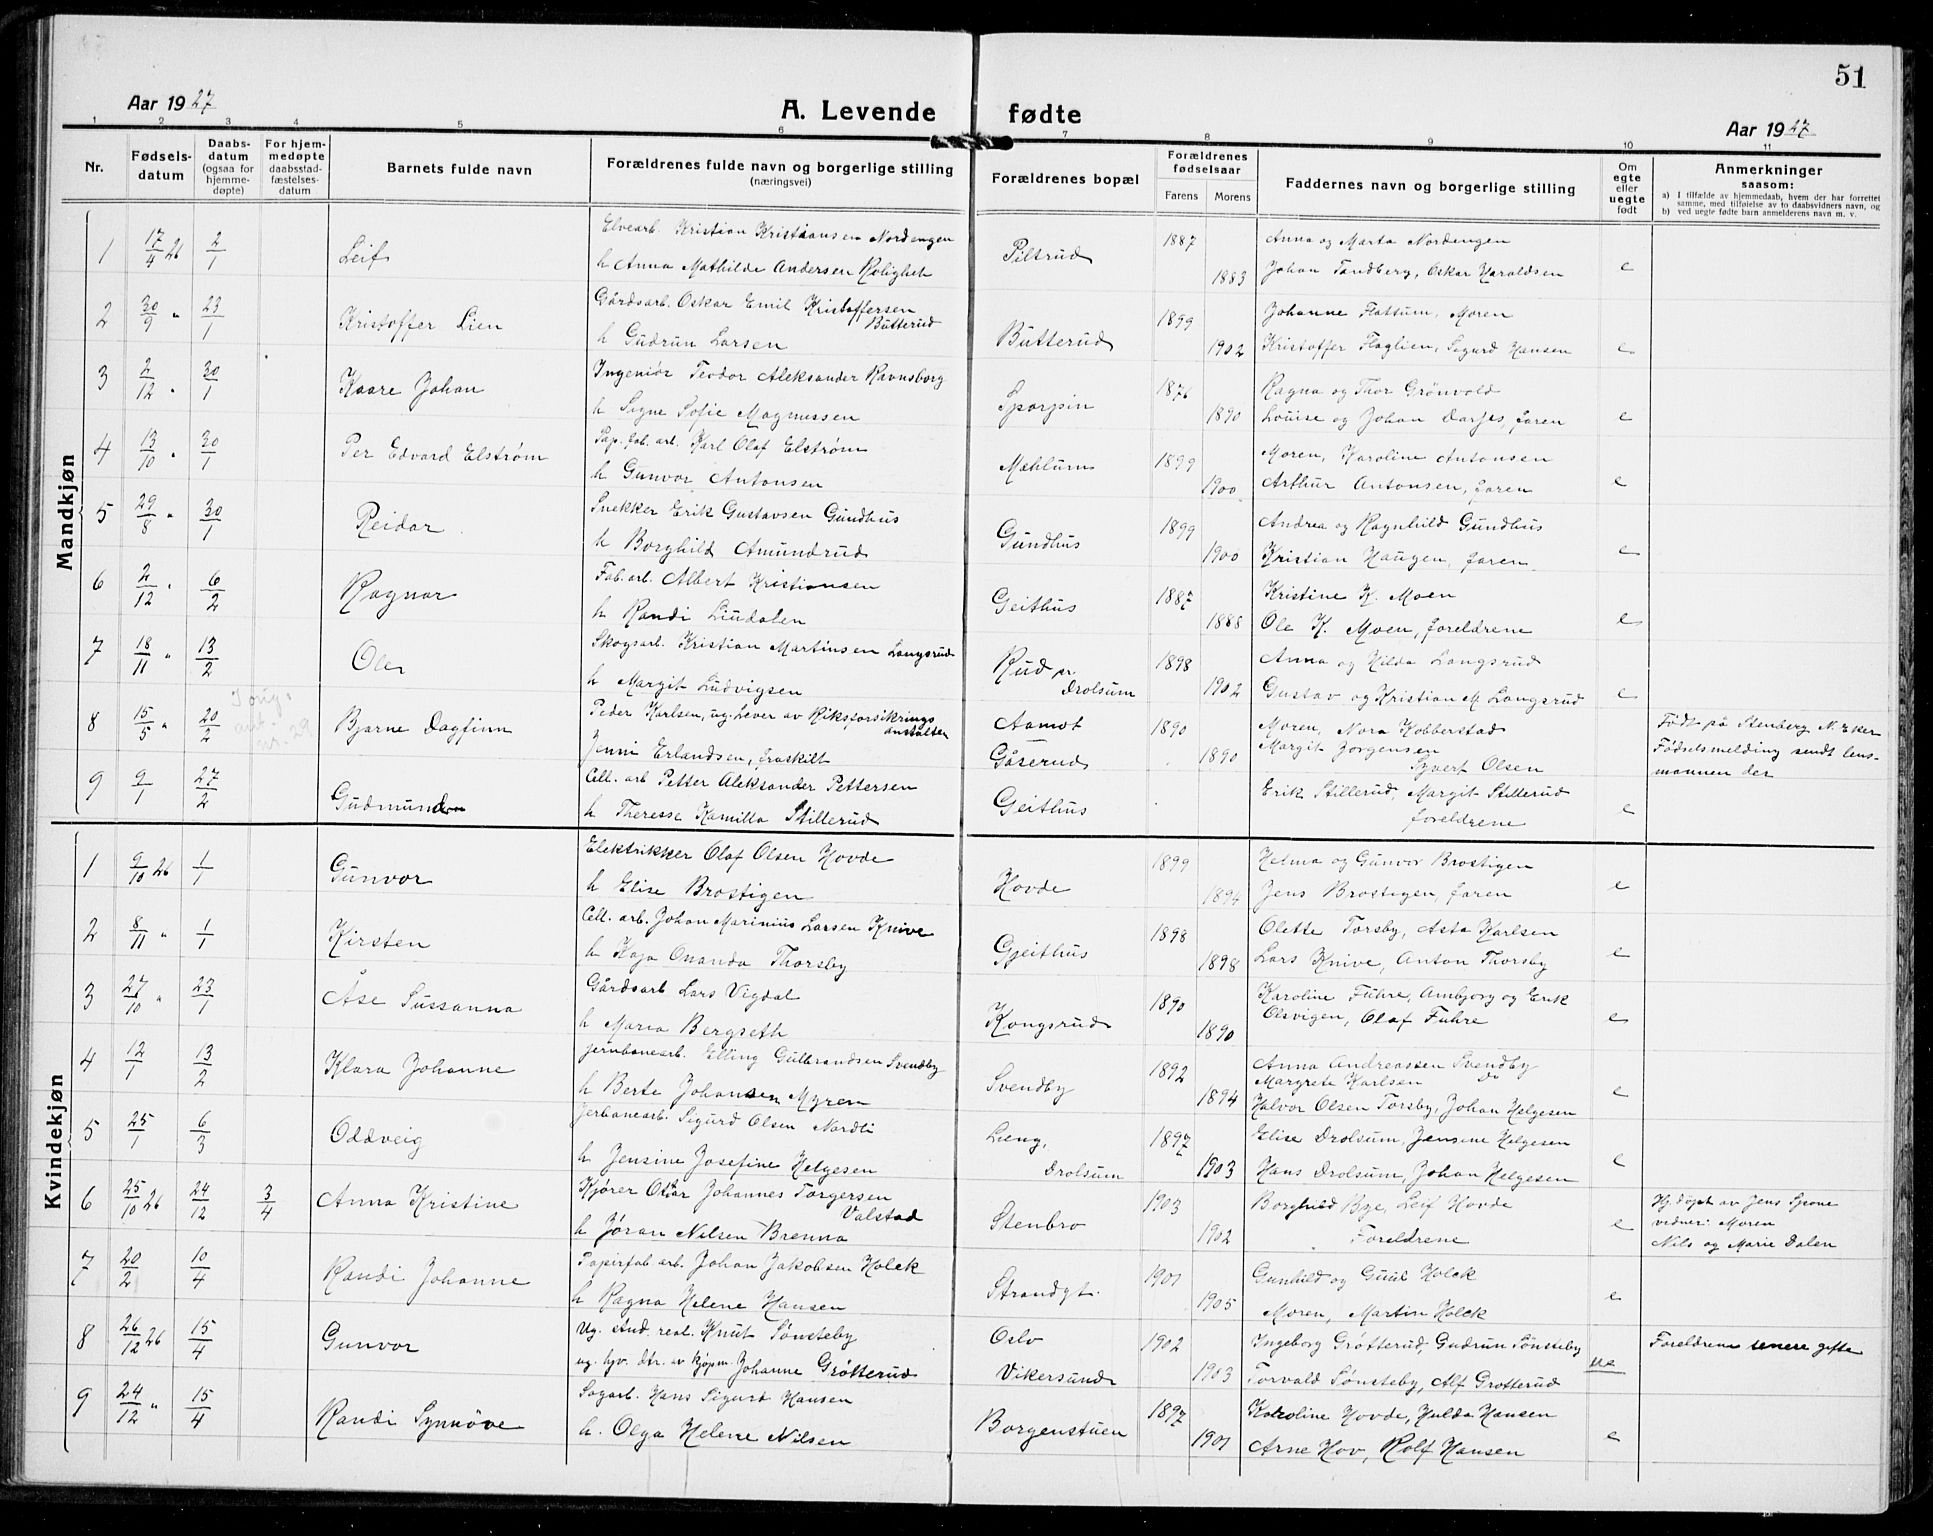 51
Aar 1927
A. Levende fødte
Aar 1927
1 2 3 4 5 6 7 8 9 10 11
Nr.
Fødsels-
datum
Daabs-
datum
(ogsaa for
hjemme-
døpte)
For hjem-
medøpte
daabsstad-
fæstelses-
datum
Barnets fulde navn
Forældrenes fulde navn og borgerlige stilling
(næringsvei)
Forældrenes bopæl
Forældrenes
fødselsaar
Farens Morens
Faddernes navn og borgerlige stilling
Om
egte
eller
uegte
født
Anmerkninger
saasom:
a) I tilfælde av hjemmedaab, hvem der har forrettet
samme, med tilføielse av to daabsvidners navn, og
b) ved uegte fødte barn anmelderens navn m. v.
Mandkjøn
1 17/4 26 2/1 Leif Elvearb. Kristian Kristiansen Nordengen Piltrud 1887 Anna og Marta Nordengen
h Anna Mathilde Andersen Rolighet 1883 Johan Tandberg, Oskar Haraldsen e
2 30/9 " 23/1 Kristoffer Lien Gårdsarb. Oskar Emil Kristoffersen Butterud Butterud 1899 Johanne Flattum, Moren
h Gudrun Larsen 1902 Kristoffer Flaglien, Sigurd Hansen e
3 2/12 " 30/1 Kaare Johan Ingeniør Teodor Aleksander Ravnsborg 1876 Ragna og Thor Grönvold
h Signe Sofie Magnussen 1890 Louise og Johan Darjes, faren e
4 13/10 " 30/1 Per Edvard Elstrøm Pap. fab. arb. Karl Olaf Elstrøm Mæhlum 1899 Moren, Karoline Antonsen
h Gunvor Antonsen 1900 Arthur Antonsen, faren e
5 29/8 " 30/1 Reidar Snekker Erik Gustavsen Gundhus Gundhus 1899 Andrea og Ragnhild Gundhus
h Borghild Amundrud 1900 Kristian Haugen, faren e
6 2/12 " 6/2 Ragnar Fab. arb. Albert Kristiansen Geithus 1887 Kristine K. Moen
h Randi Liudalen 1888 Ole K. Moen, foreldrene e
7 18/11 " 13/2 Ole Skogsarb. Kristian Martinsen Langsrud Rud pr. Drolsum 1898 Anna og Hilda Langsrud
h Margit Ludvigsen 1902 Gustav og Kristian M. Langsrud e
8 15/5 " 20/2 Bjarne Dagfinn Peder Karlsen, ug. Lever av Riksforsikrings anstalten Aamot 1890 Moren, Nora Kobberstad Født på Stenberg N. Eker
Jenni Erlandsen, fraskilt Gåserud 1890 Margit Jorgensen Syvert Olsen Fødselsmelding sendt lens-
mannen der
9 9/1 27/2 Gudmund Cell. arb Petter Aleksander Pettersen Geithus Erik Stillerud, Margit Stillerud
h Theresse Kamilla Stillerud foreldrene e
Kvindekjøn
1 9/10 26 1/1 Gunvor Elektrikker Olaf Olsen Hovde Hovde 1899 Helma og Gunvor Brostigen
h Elise Brostigen 1894 Jens Brostigen, faren e
2 8/11 " 1/1 Kirsten Cell. arb. Johan Marinius Larsen Knive Gjeithus 1898 Olette Torsby, Asta Karlsen
h Kaja Ananda Thorsby 1898 Lars Knive, Anton Thorsby e
3 27/10 " 23/1 Åse Sussanna Gårdsarb Lars Vigdal Kongsrud 1890 Karoline Fuhre, Ambjorg og Erik
h Maria Bergseth 1890 Olsvigen, Olaf Fuhre e
4 12/1 13/2 Klara Johanne Jernbanearb. Elling Gulbrandsen Svendby Svendby 1892 Anna Andreassen Svendby
Margrete Karlsen Do
h Berte Johansen Myren 1894 Halvor Olsen Torsby, Johan Helgesen e
5 25/1 6/3 Oddveig Jerbanearb. Sigurd Olsen Nordli Lieng, Drolsum 1897 Elise Drolsum, Jensine Helgesen
h Jensine Josefine Helgesen 1903 Hans Drolsum, Johan Helgesen e
6 25/10 26 24/12 3/4 Anna Kristine Kjører Ottar Johannes Torgersen Valstad Stenbro 1903 Borghild Bye, Leif Hovde Hj. døpt av Jens Spone
h Jøran Nilsen Brenna 1902 Foreldrene e vidner: Moren
Nils og Marie Dalen
7 20/2 10/4 Randi Johanne Papirfab arb. Johan Jakobsen Holck Strandgt. 1901 Gunhild og Guul Holck
h Ragna Helene Hansen 1905 Moren, Martin Holck e
8 26/12 26 15/4 Gunvor Ug. stud. real. Knut Sønsteby Oslo 1902 Ingeborg Grøtterud, Gudrun Sønsteby Foreldrene senere gifte
ug. hjv. dtr. av kjøpm. Johanne Grøtterud Vikersund 1903 Torvald Sønsteby, Alf Grotterud ue
9 24/12 " 15/4 Randi Synnöve Sagarb. Hans Sigurd Hansen Borgenstuen 1897 Karoline Hovde, Hulda Hansen
h. Olga Helene Nilsen 1901 Arne Hov, Rolf Hansen e